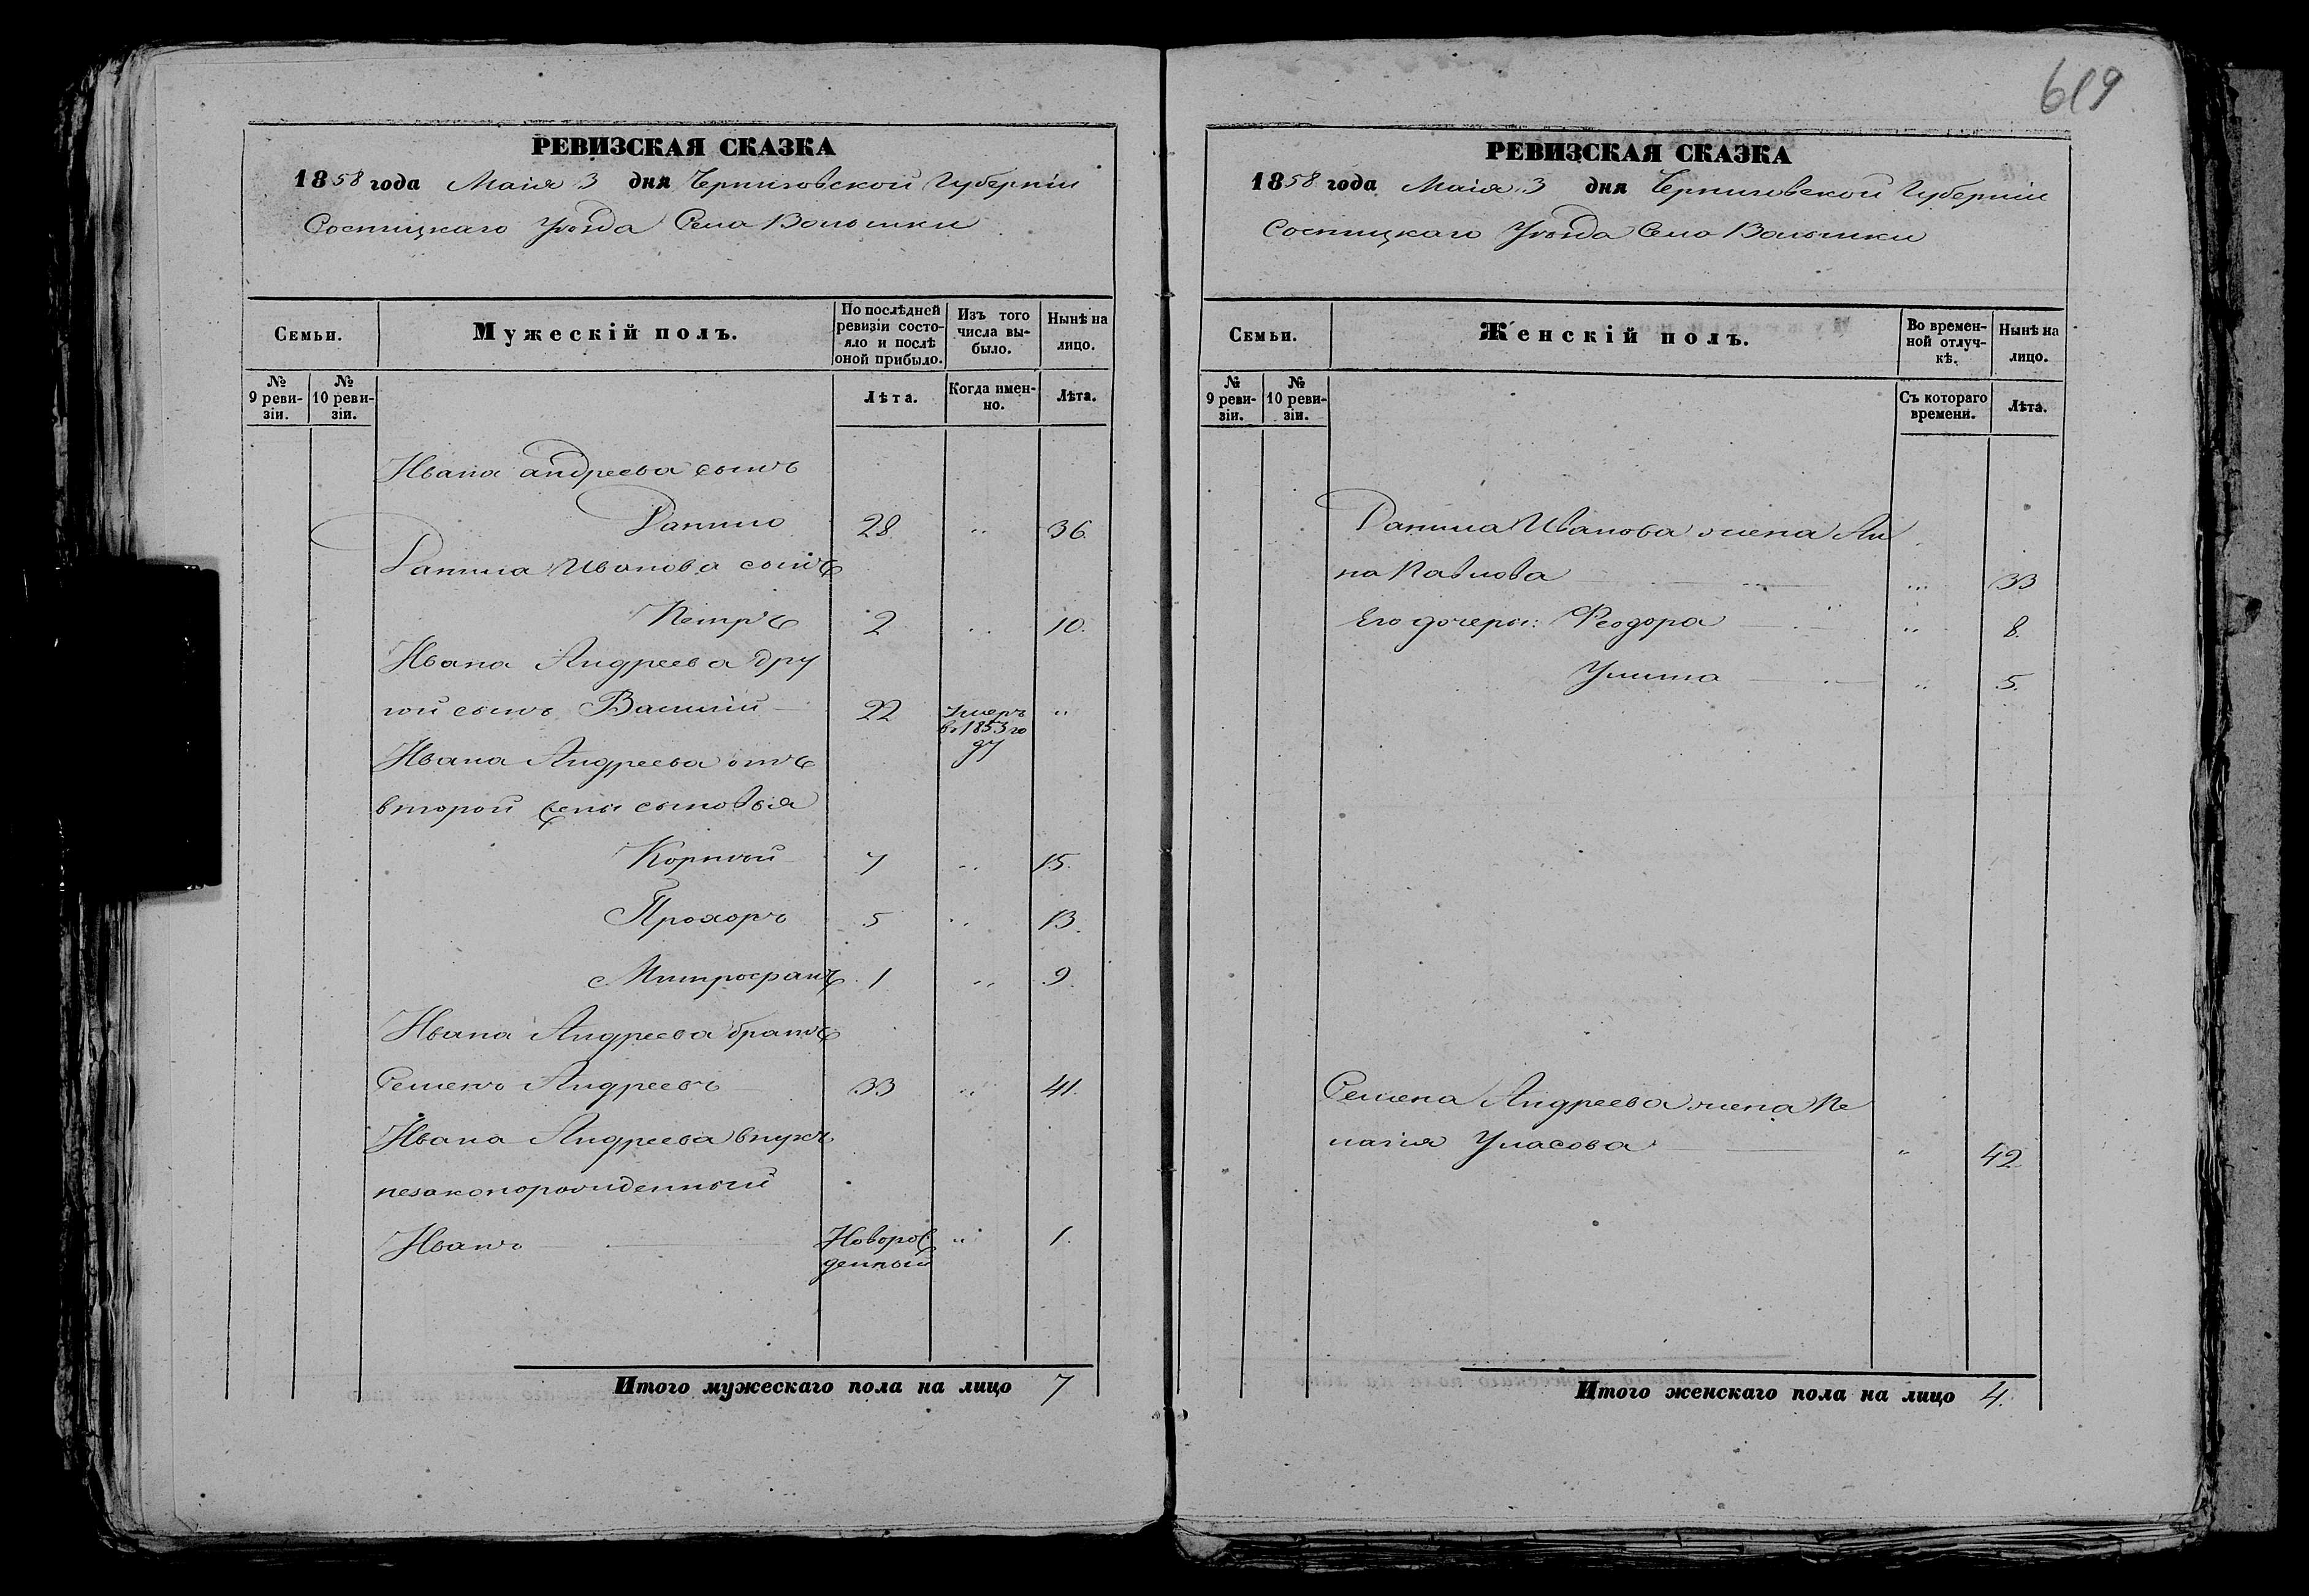 619
РЕВИЗСКАЯ СКАЗКА
1858 года Маія 3 дня Черниговской Губерніи
Сосницкаго Уѣзда Села Волынки
Семьи.
Мужескій полъ.
По послѣдней ревизіи состояло и послѣ оной прибыло.
Изъ того числа выбыло.
Нынѣ на лицо.
№ 9 ревизіи.
№ 10 ревизіи.
Лѣта.
Когда именно.
Лѣта.
Ивана андреева сынъ
Данило 28 " 36.
Данила Иванова сынъ
Петръ 2 " 10.
Ивана Андреева дру
гой сынъ Василій 22 Умеръ въ 1853 го ду "
Ивана Андреева отъ
второй жены сыновья
Корнѣй 7 " 15.
Прохоръ 5 " 13.
Митрофанъ 1 " 9.
Ивана Андреева братъ
Семенъ Андреевъ 33 " 41.
Ивана Андреева внукъ
незаконорожденный
Иванъ Новорож денный " 1.
Итого мужескаго пола на лицо 7
РЕВИЗСКАЯ СКАЗКА
1858 года Маія 3 дня Черниговской Губерніи
Сосницкаго Уѣзда Села Волынки
Семьи.
Женскій полъ.
Во временной отлучкѣ.
Нынѣ на лицо.
№ 9 ревизіи.
№ 10 ревизіи.
Съ котораго времени.
Лѣта.
Данила Иванова жена Ан
на Павлова " 33
Его дочери: Феодора " 8.
Улита " 5.
Семена Андреева жена Пе
лагія Уласова " 42
Итого женскаго пола на лицо 4.